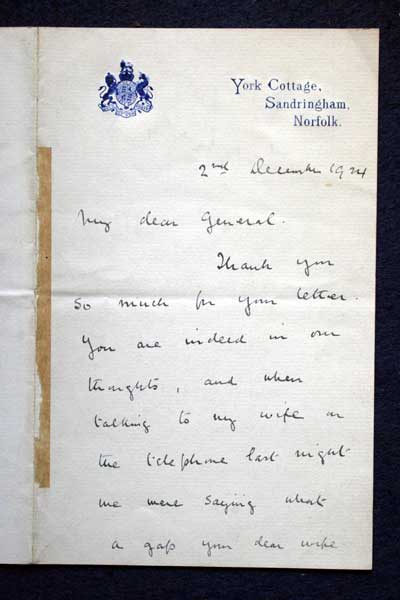 York Cottage,
Sandringham,
Norfolk.
2nd December 1924
My dear General.
Thank you
so much for your letter.
You are indeed in our
thoughts, and when
talking to my wife on
the telephone last night
we were saying what
a gap your dear wife